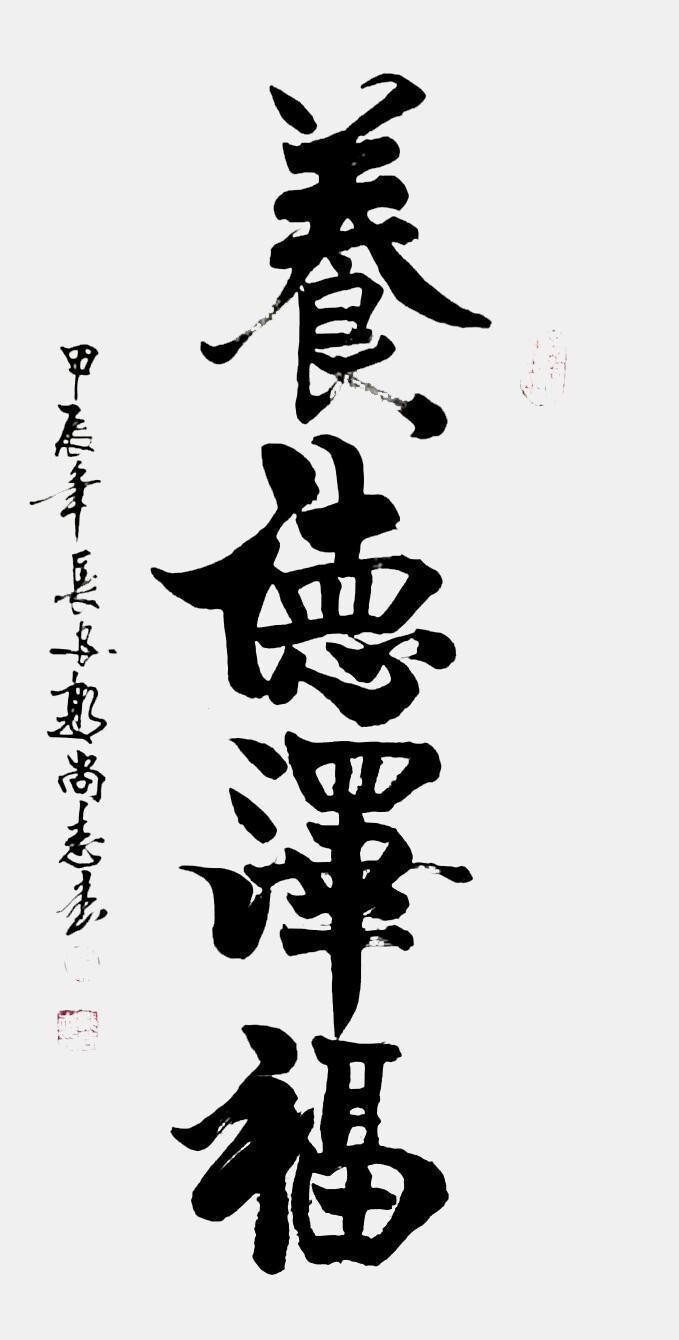 養德澤福
甲辰年長安郭尚志书